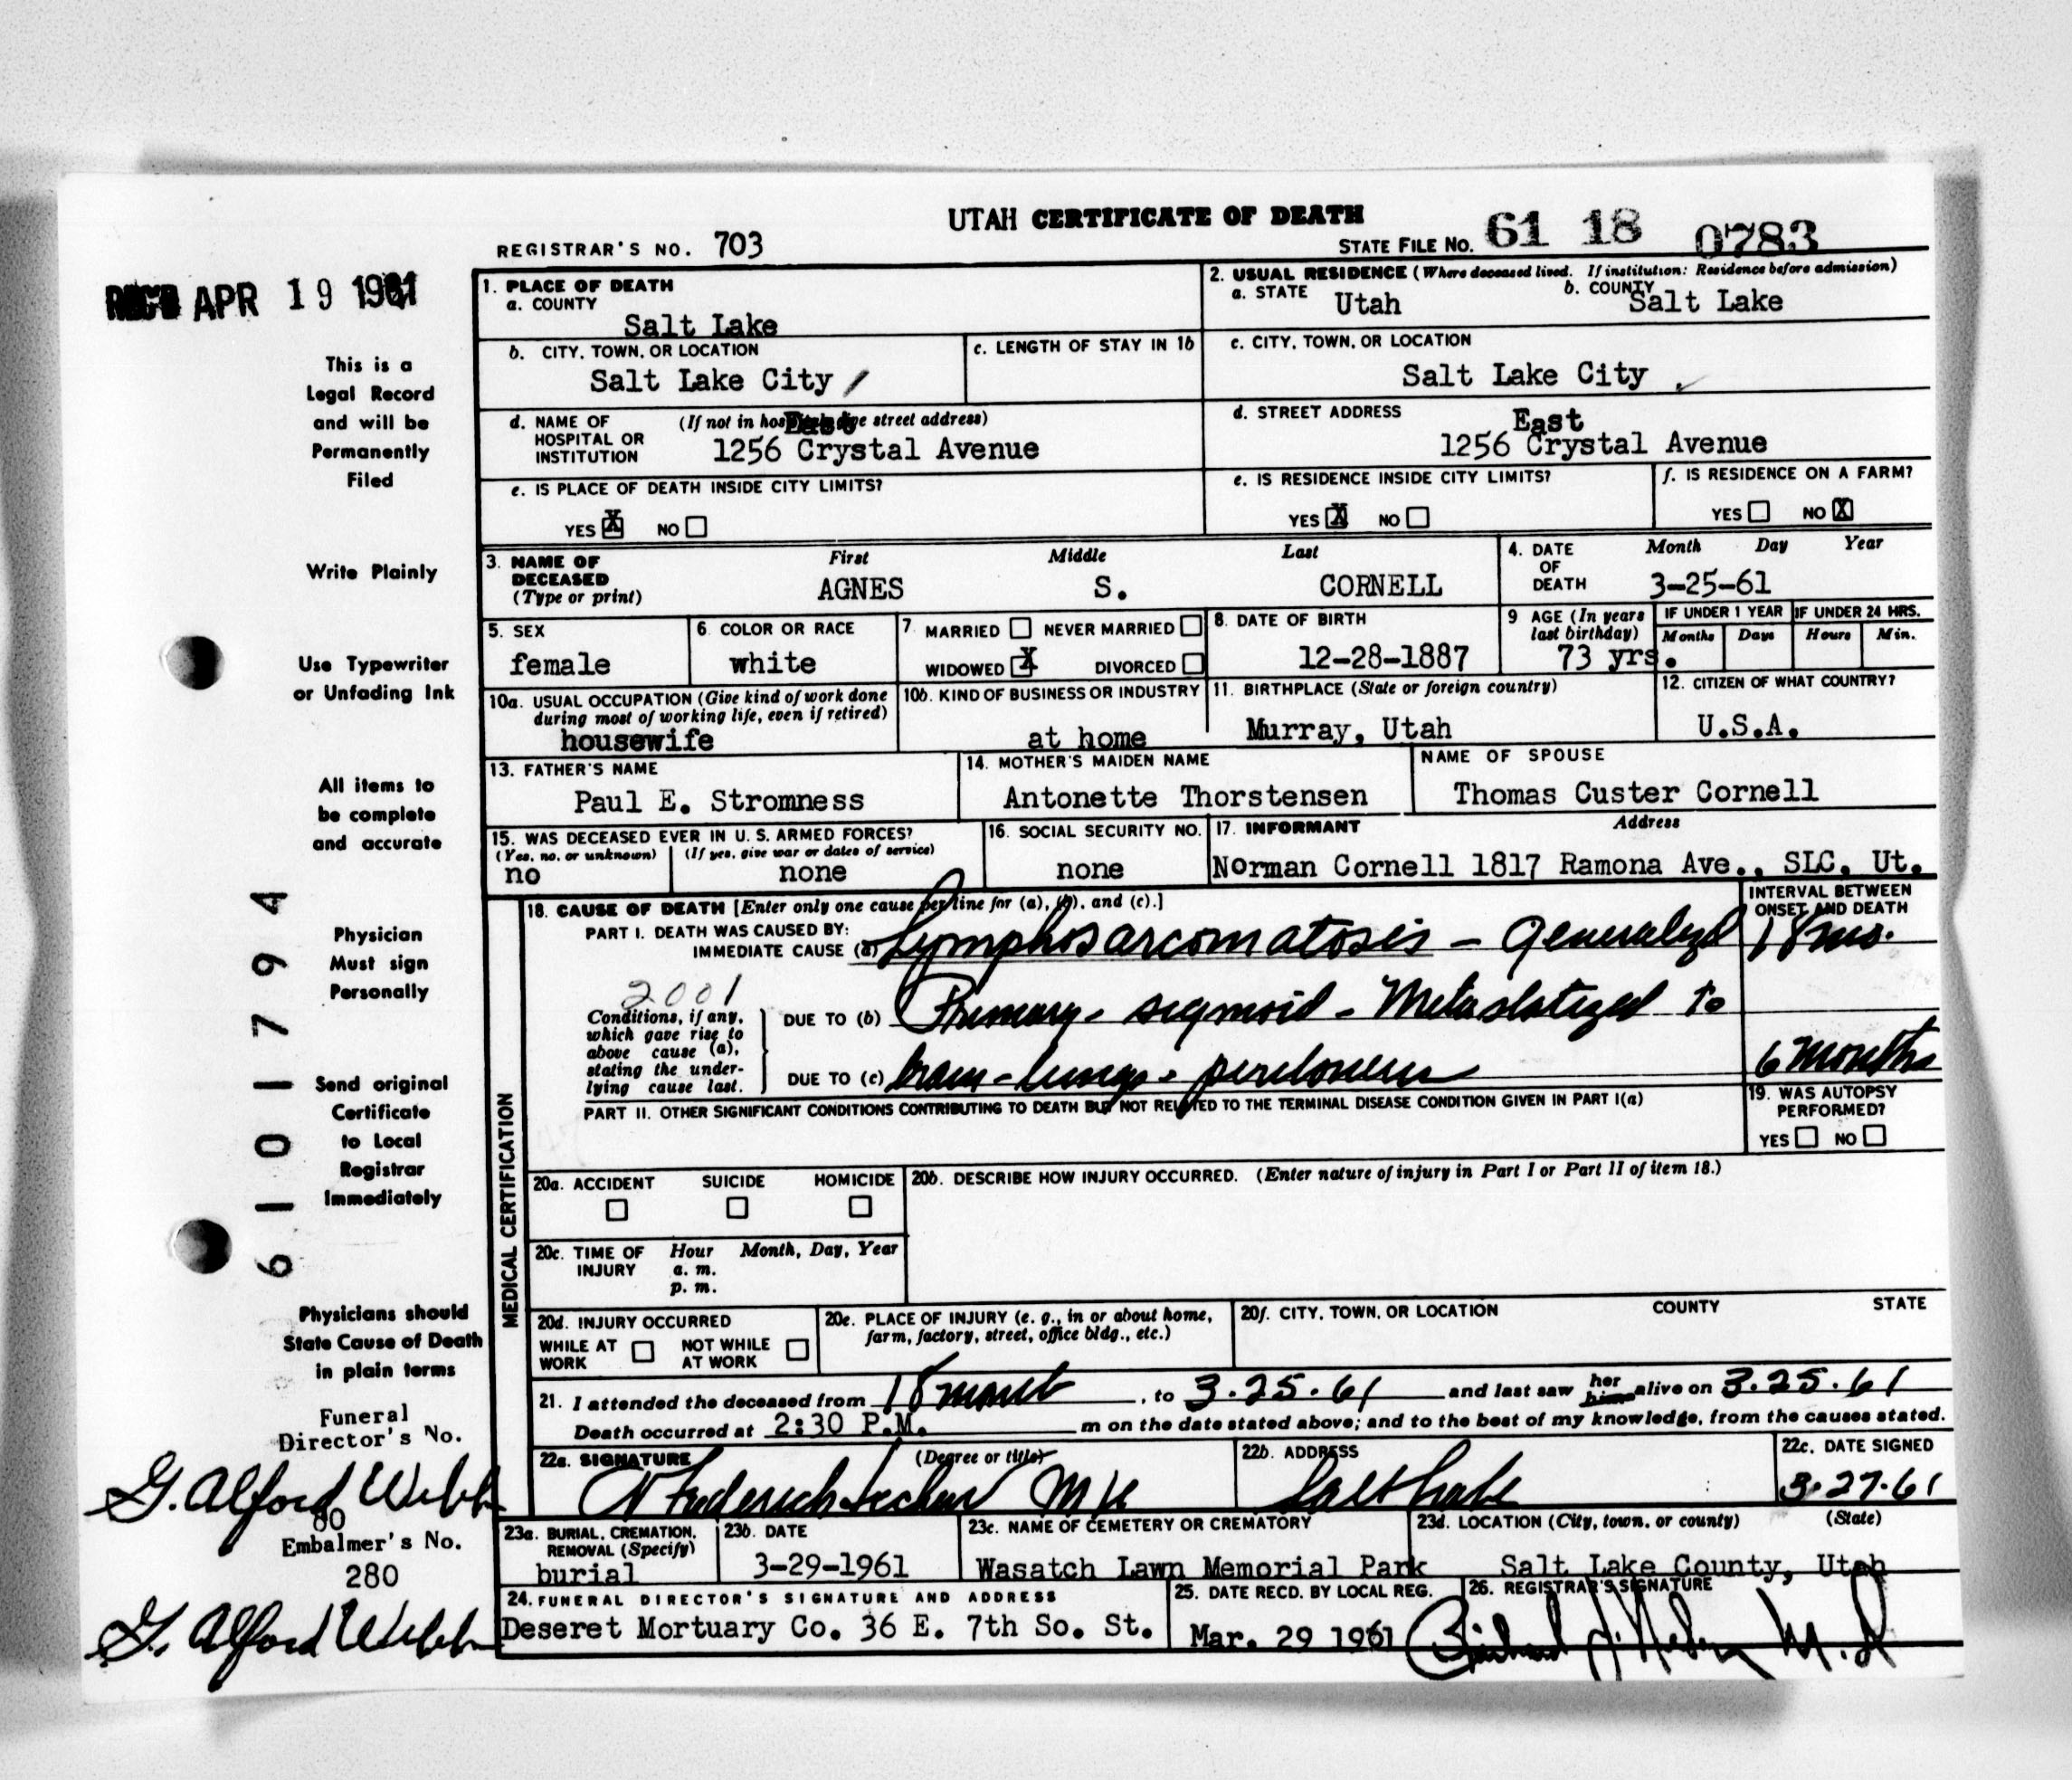 UTAH CERTIFICATE OF DEATH
REGISTRAR'S NO. 703
STATE FILE NO. 61 18 0783
REC'D APR 19 1961
This is a
Legal Record
and will be
Permanently
Filed
Write Plainly
Use Typewriter
or Unfading Ink
All items to
be complete
and accurate
Physician
Must sign
Personally
Send original
Certificate
to Local
Registrar
Immediately
Physicians should
State Cause of Death
in plain terms
Funeral
Director's No.
G. Alford Webb
80
Embalmer's No.
280
G. Alford Webb
6 1 0 1 7 9 4
1. PLACE OF DEATH
a. COUNTY
Salt Lake
2. USUAL RESIDENCE (Where deceased lived. If institution: Residence before admission)
a. STATE Utah b. COUNTY Salt Lake
b. CITY, TOWN, OR LOCATION
Salt Lake City
c. LENGTH OF STAY IN 1b
c. CITY, TOWN, OR LOCATION
Salt Lake City
d. NAME OF HOSPITAL OR INSTITUTION (If not in hospital, give street address)
East
1256 Crystal Avenue
d. STREET ADDRESS
East
1256 Crystal Avenue
e. IS PLACE OF DEATH INSIDE CITY LIMITS?
YES X NO
e. IS RESIDENCE INSIDE CITY LIMITS?
YES X NO
f. IS RESIDENCE ON A FARM?
YES NO X
3. NAME OF DECEASED (Type or print)
First Middle Last
AGNES S. CORNELL
4. DATE OF DEATH
Month Day Year
3-25-61
5. SEX
female
6. COLOR OR RACE
white
7. MARRIED NEVER MARRIED
WIDOWED X DIVORCED
8. DATE OF BIRTH
12-28-1887
9 AGE (In years last birthday)
73 yrs.
IF UNDER 1 YEAR
Months Days
IF UNDER 24 HRS.
Hours Min.
10a. USUAL OCCUPATION (Give kind of work done
during most of working life, even if retired)
housewife
10b. KIND OF BUSINESS OR INDUSTRY
at home
11. BIRTHPLACE (State or foreign country)
Murray, Utah
12. CITIZEN OF WHAT COUNTRY?
U.S.A.
13. FATHER'S NAME
Paul E. Stromness
14. MOTHER'S MAIDEN NAME
Antonette Thorstensen
NAME OF SPOUSE
Thomas Custer Cornell
15. WAS DECEASED EVER IN U. S. ARMED FORCES?
(Yes, no, or unknown) (If yes, give war or dates of service)
no none
16. SOCIAL SECURITY NO.
none
17. INFORMANT Address
Norman Cornell 1817 Ramona Ave., SLC, Ut.
MEDICAL CERTIFICATION
18. CAUSE OF DEATH [Enter only one cause per line for (a), (b), and (c).]
INTERVAL BETWEEN
ONSET AND DEATH
PART I. DEATH WAS CAUSED BY:
IMMEDIATE CAUSE (a) Lymphosarcomatosis - Generalized 18 mo.
2001
Conditions, if any,
which gave rise to
above cause (a),
stating the under-
lying cause last.
DUE TO (b) Primary - sigmoid - Metastatized to
DUE TO (c) brain - lungs - peritoneum 6 months
PART II. OTHER SIGNIFICANT CONDITIONS CONTRIBUTING TO DEATH BUT NOT RELATED TO THE TERMINAL DISEASE CONDITION GIVEN IN PART I(a)
19. WAS AUTOPSY
PERFORMED?
YES NO
20a. ACCIDENT SUICIDE HOMICIDE
20b. DESCRIBE HOW INJURY OCCURRED. (Enter nature of injury in Part I or Part II of item 18.)
20c. TIME OF INJURY
Hour Month, Day, Year
a. m.
p. m.
20d. INJURY OCCURRED
WHILE AT WORK NOT WHILE AT WORK
20e. PLACE OF INJURY (e. g., in or about home,
farm, factory, street, office bldg., etc.)
20f. CITY, TOWN, OR LOCATION COUNTY STATE
21. I attended the deceased from 18 month, to 3.25.61 and last saw her him alive on 3.25.61
Death occurred at 2:30 P.M. m on the date stated above; and to the best of my knowledge, from the causes stated.
22a. SIGNATURE (Degree or title)
Frederick
22b. ADDRESS
Salt Lake
22c. DATE SIGNED
3.27.61
23a. BURIAL, CREMATION,
REMOVAL (Specify)
burial
23b. DATE
3-29-1961
23c. NAME OF CEMETERY OR CREMATORY
Wasatch Lawn Memorial Park
23d. LOCATION (City, town, or county) (State)
Salt Lake County, Utah
24. FUNERAL DIRECTOR'S SIGNATURE AND ADDRESS
Deseret Mortuary Co. 36 E. 7th So. St.
25. DATE RECD. BY LOCAL REG.
Mar. 29 1961
26. REGISTRAR'S SIGNATURE
M.D